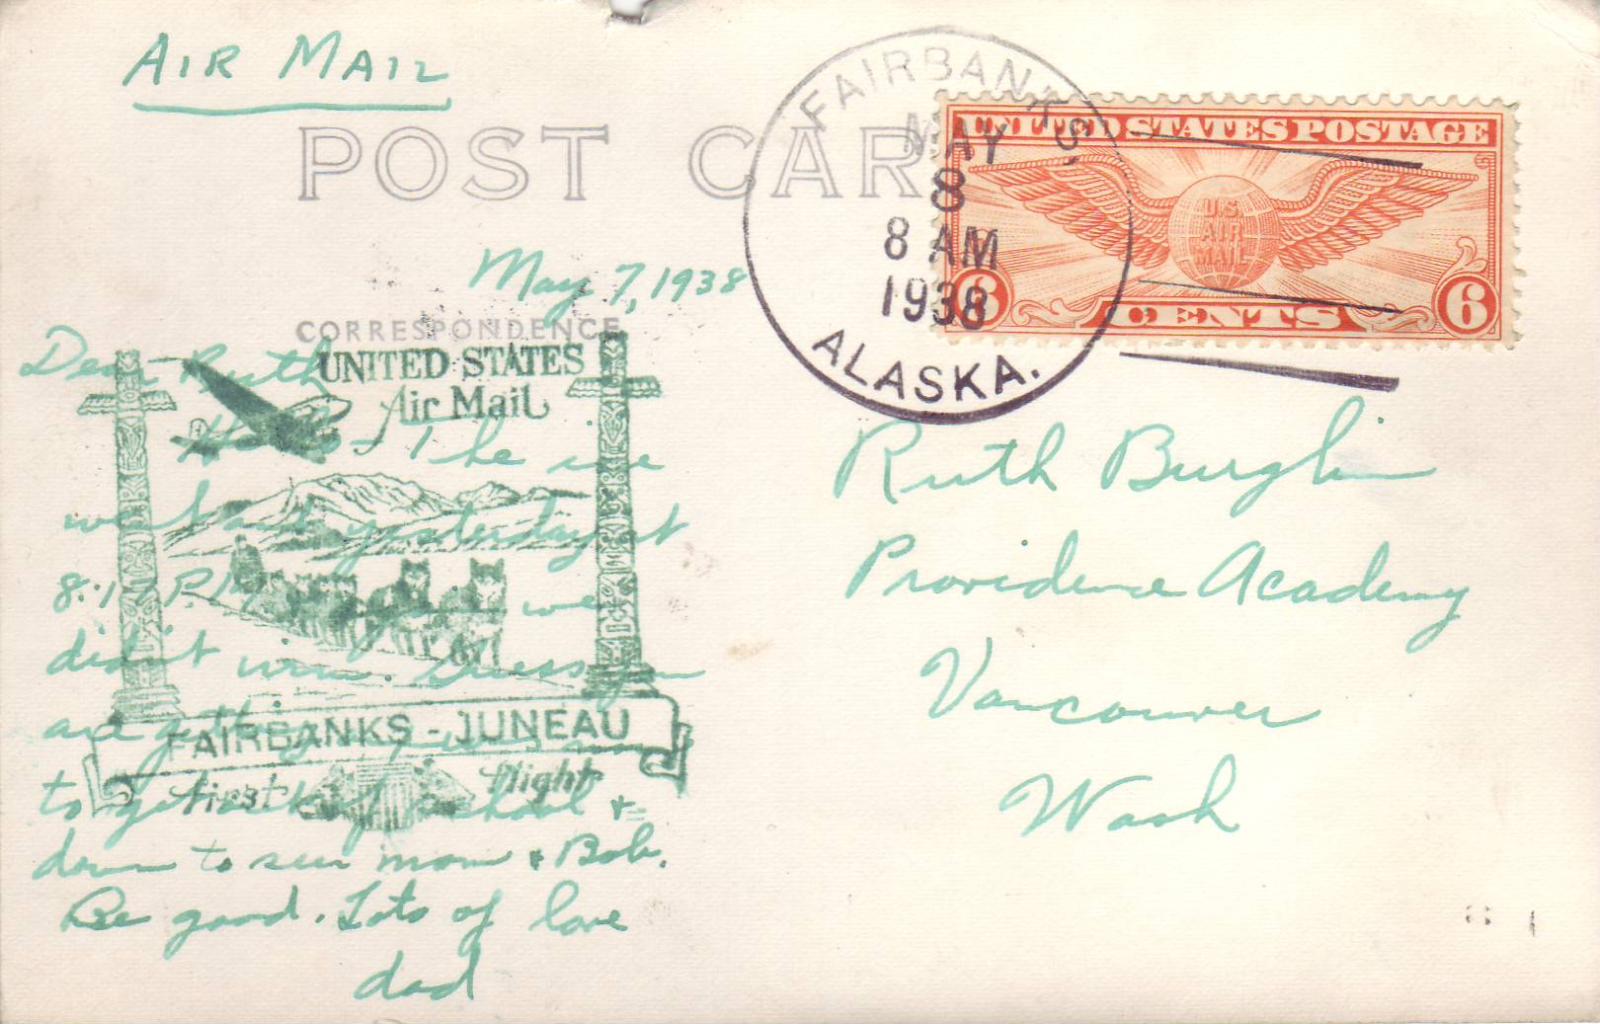 AIR MAIL
POST CAR
FAIRBANKS,
MAY
8
8 AM
1938
ALASKA.
UNITED STATES POSTAGE
U.S.
AIR
MAIL
6 CENTS 6
May 7, 1938
CORRESPONDENCE
UNITED STATES
Air Mail
FAIRBANKS - JUNEAU
First Flight
Dear Ruth
The ice
went out yesterday at
8:17 P.M. we
didn't win. Guess you
are
to get out of school +
down to see mom + Bob.
Be good. Lots of love
dad
Ruth Burglin
Providence Academy
Vancouver
Wash